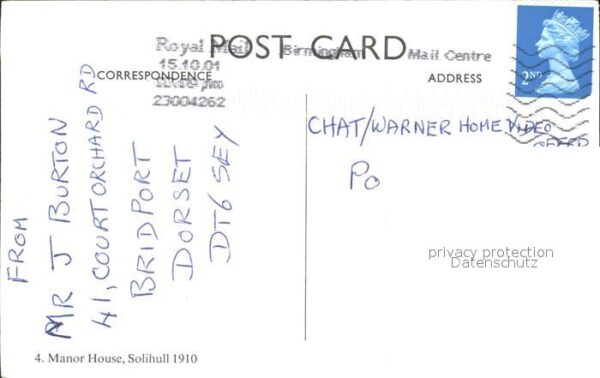 POST CARD
Royal Mail Birmingham Mail Centre
15.10.01
23004262
CORRESPONDENCE
ADDRESS
2ND
FROM
MR J BURTON
41, COURTORCHARD RD
BRIDPORT
DORSET
DT6 5EY
CHAT/WARNER HOME VIDEO
OFFER
PO
privacy protection
Datenschutz
4. Manor House, Solihull 1910